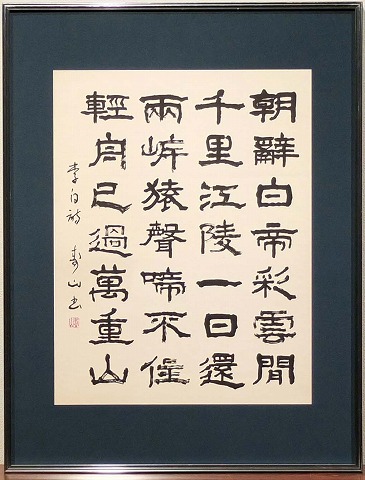 朝辭白帝彩雲間
千里江陵一日還
兩岸猿聲啼不住
輕舟已過萬重山
李白詩 壽山書